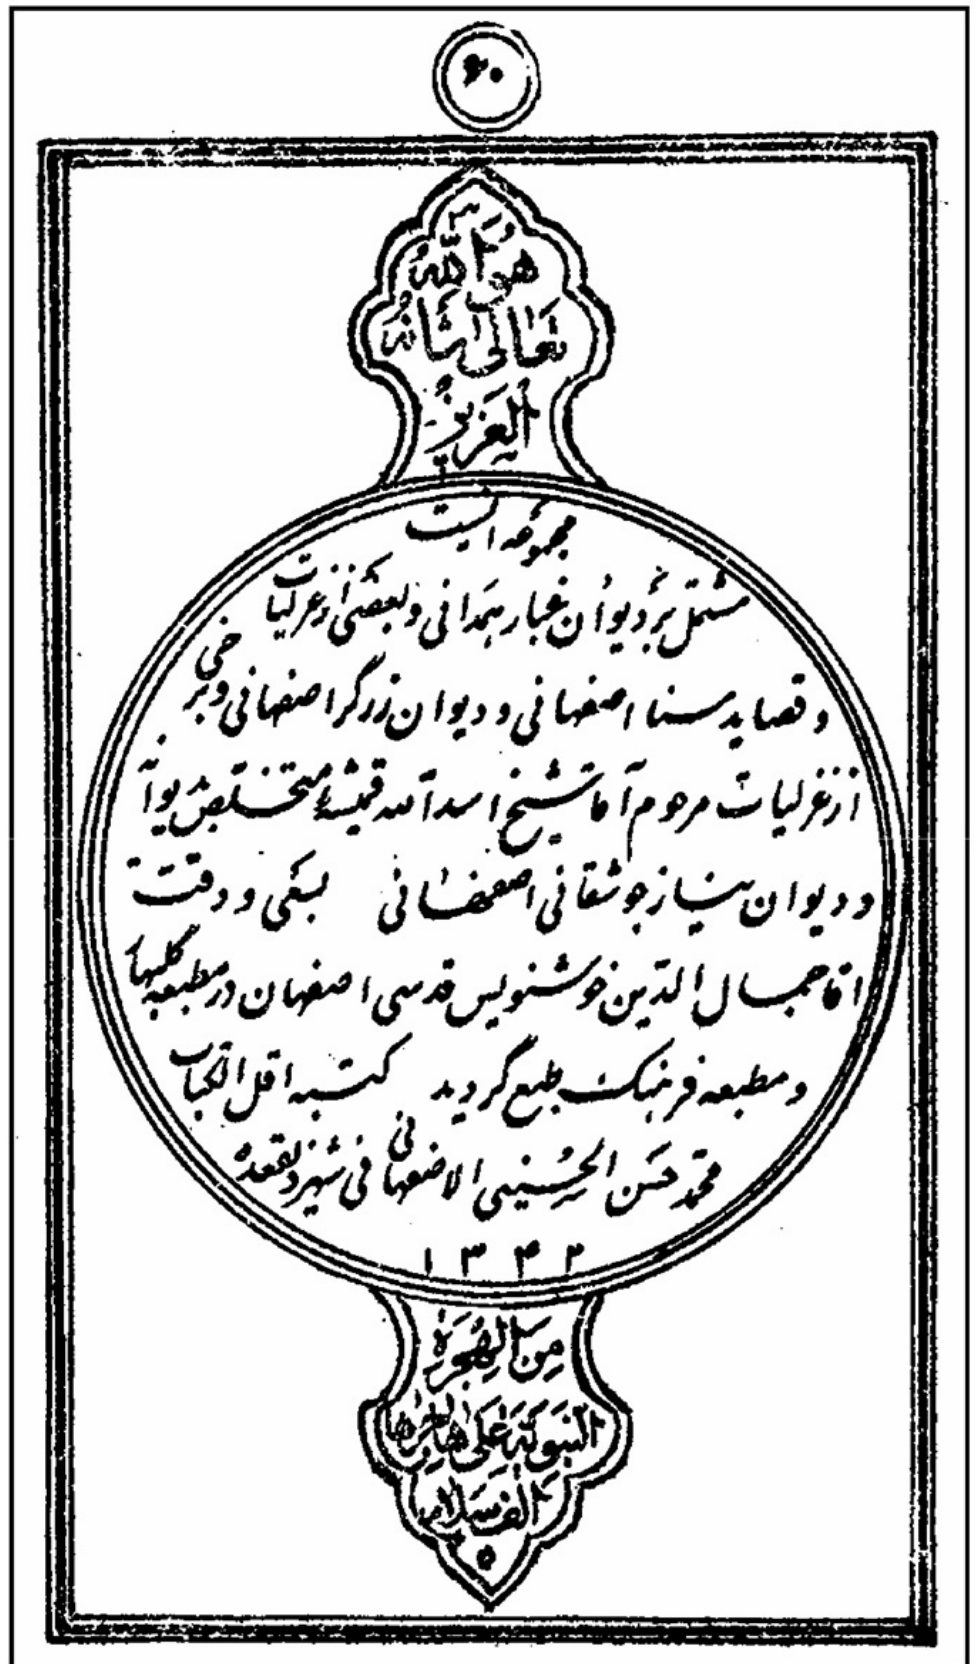 ۶۰
هُوَ اللّهُ
تَعَالىٰ شَانُهُ
اَلعَزیزُ
مجموعه ایست
مشتمل بر دیوان غبار همدانی و بعضی از غزلیات
و قصاید سنا اصفهانی و دیوان زرگر اصفهانی و برخی
از غزلیات مرحوم آقا شیخ اسد الله قمشهٔ متخلص
و دیوان نیاز جوشقانی اصفهانی بسعی و دقت
اقا جمال الدین خوشنویس قدسی اصفهان در مطبعه
و مطبعه فرهنک طبع گردید کتبه اقل الکتاب
محمد حسن الحسینی الاصفهانی فی شهر ذیقعده
۱۳۴۲
مِنَ الهِجرَةِ
النَبَویّةِ عَلیٰ هاجرها
اَلف سَلام